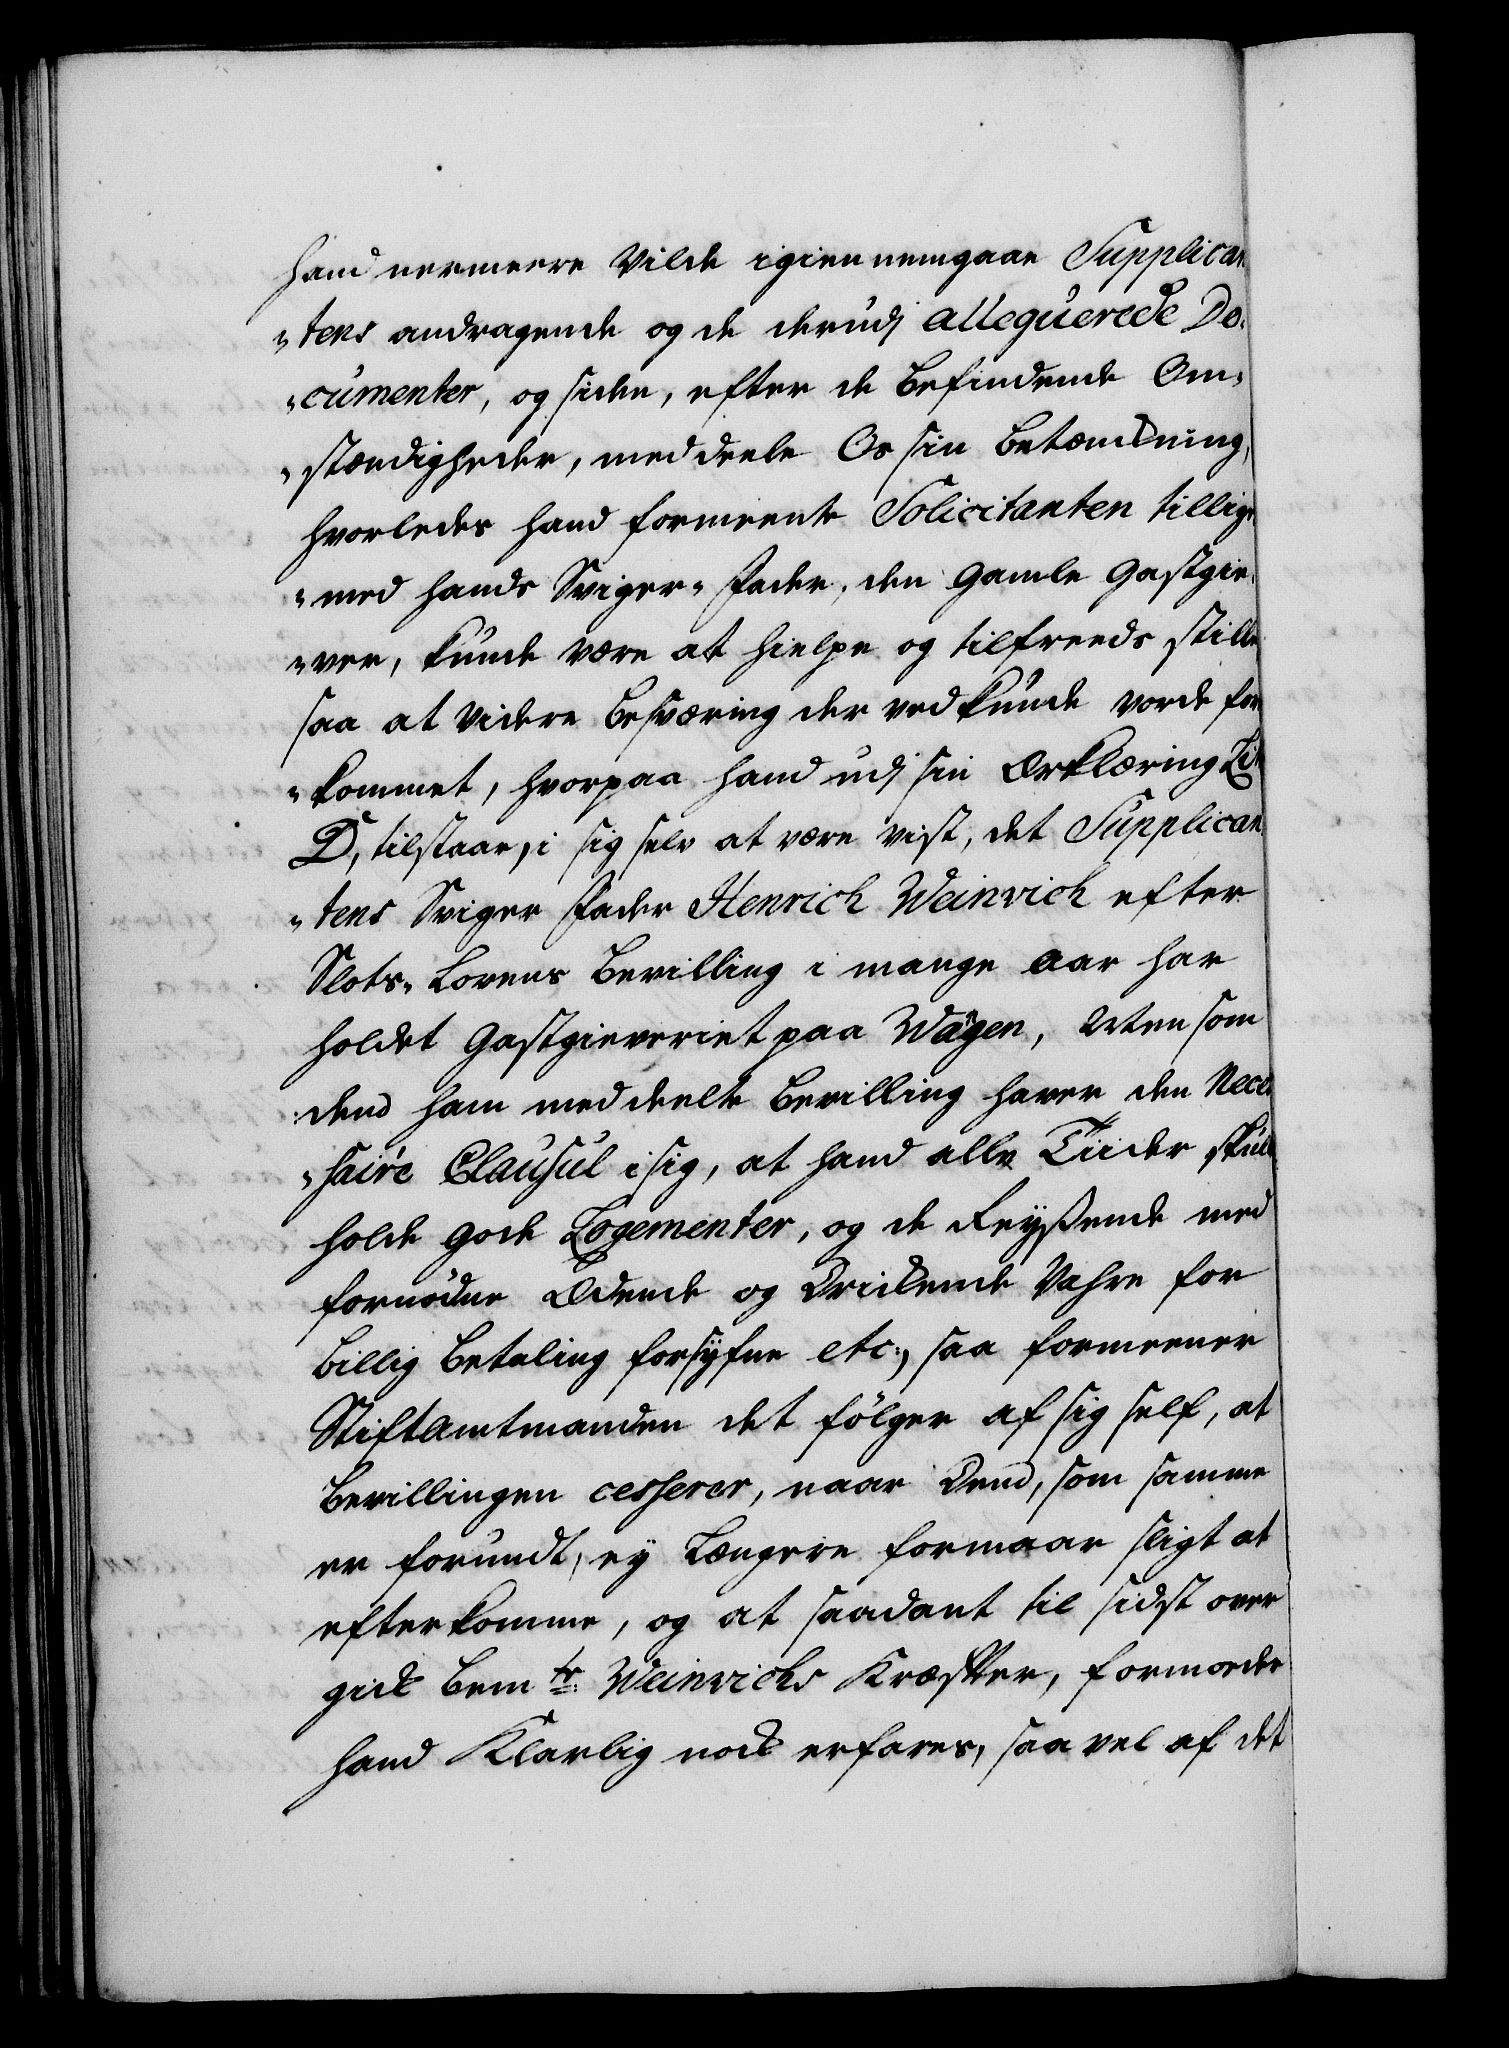 hand nermeere Vilde igiennemgaae Supplican-
"tens andragende og de derudj allequerede Do-
"cumenter, og siden, efter de befindende Om-
"stændigheder, meddeele Os sin betænckning,
hvorledes hand formeente Solicitanten tillige
"med hands Sviger-Fader, den gamle gastgie-
"ver, kunde være at hielpe og tilfreeds stille
saa at videre besværing der ved kunde vorde for
"kommet, hvorpaa hand udj sin Erklæring Lit
D, tilstaar, i sig selv at være vist, det Supplican-
"tens Sviger Fader Henrich Weinrich efter
Slots-Lovens bevilling i mange Aar har
holdet gastgieveriet paa Wägen, Uten som
dend ham meddeelte bevilling haver den Neces-
"saire Clausul i sig, at hand alle Tiider skulle
holde gode Logementer, og de Reyßende med
fornödne Ædende og Drickende Vahre for
billig betaling forsyfne etc:, saa formeener
Stiftamtmanden det fölger af sig self, at
bevillingen cesserer, naar Dend, som samme
er forundt, ey Længere formaar sligt at
efterkomme, og at saadant til sidst over
gick bemte: Weinrichs Kræfter, formoder
hand Klarlig nock erfares, saa vel af det